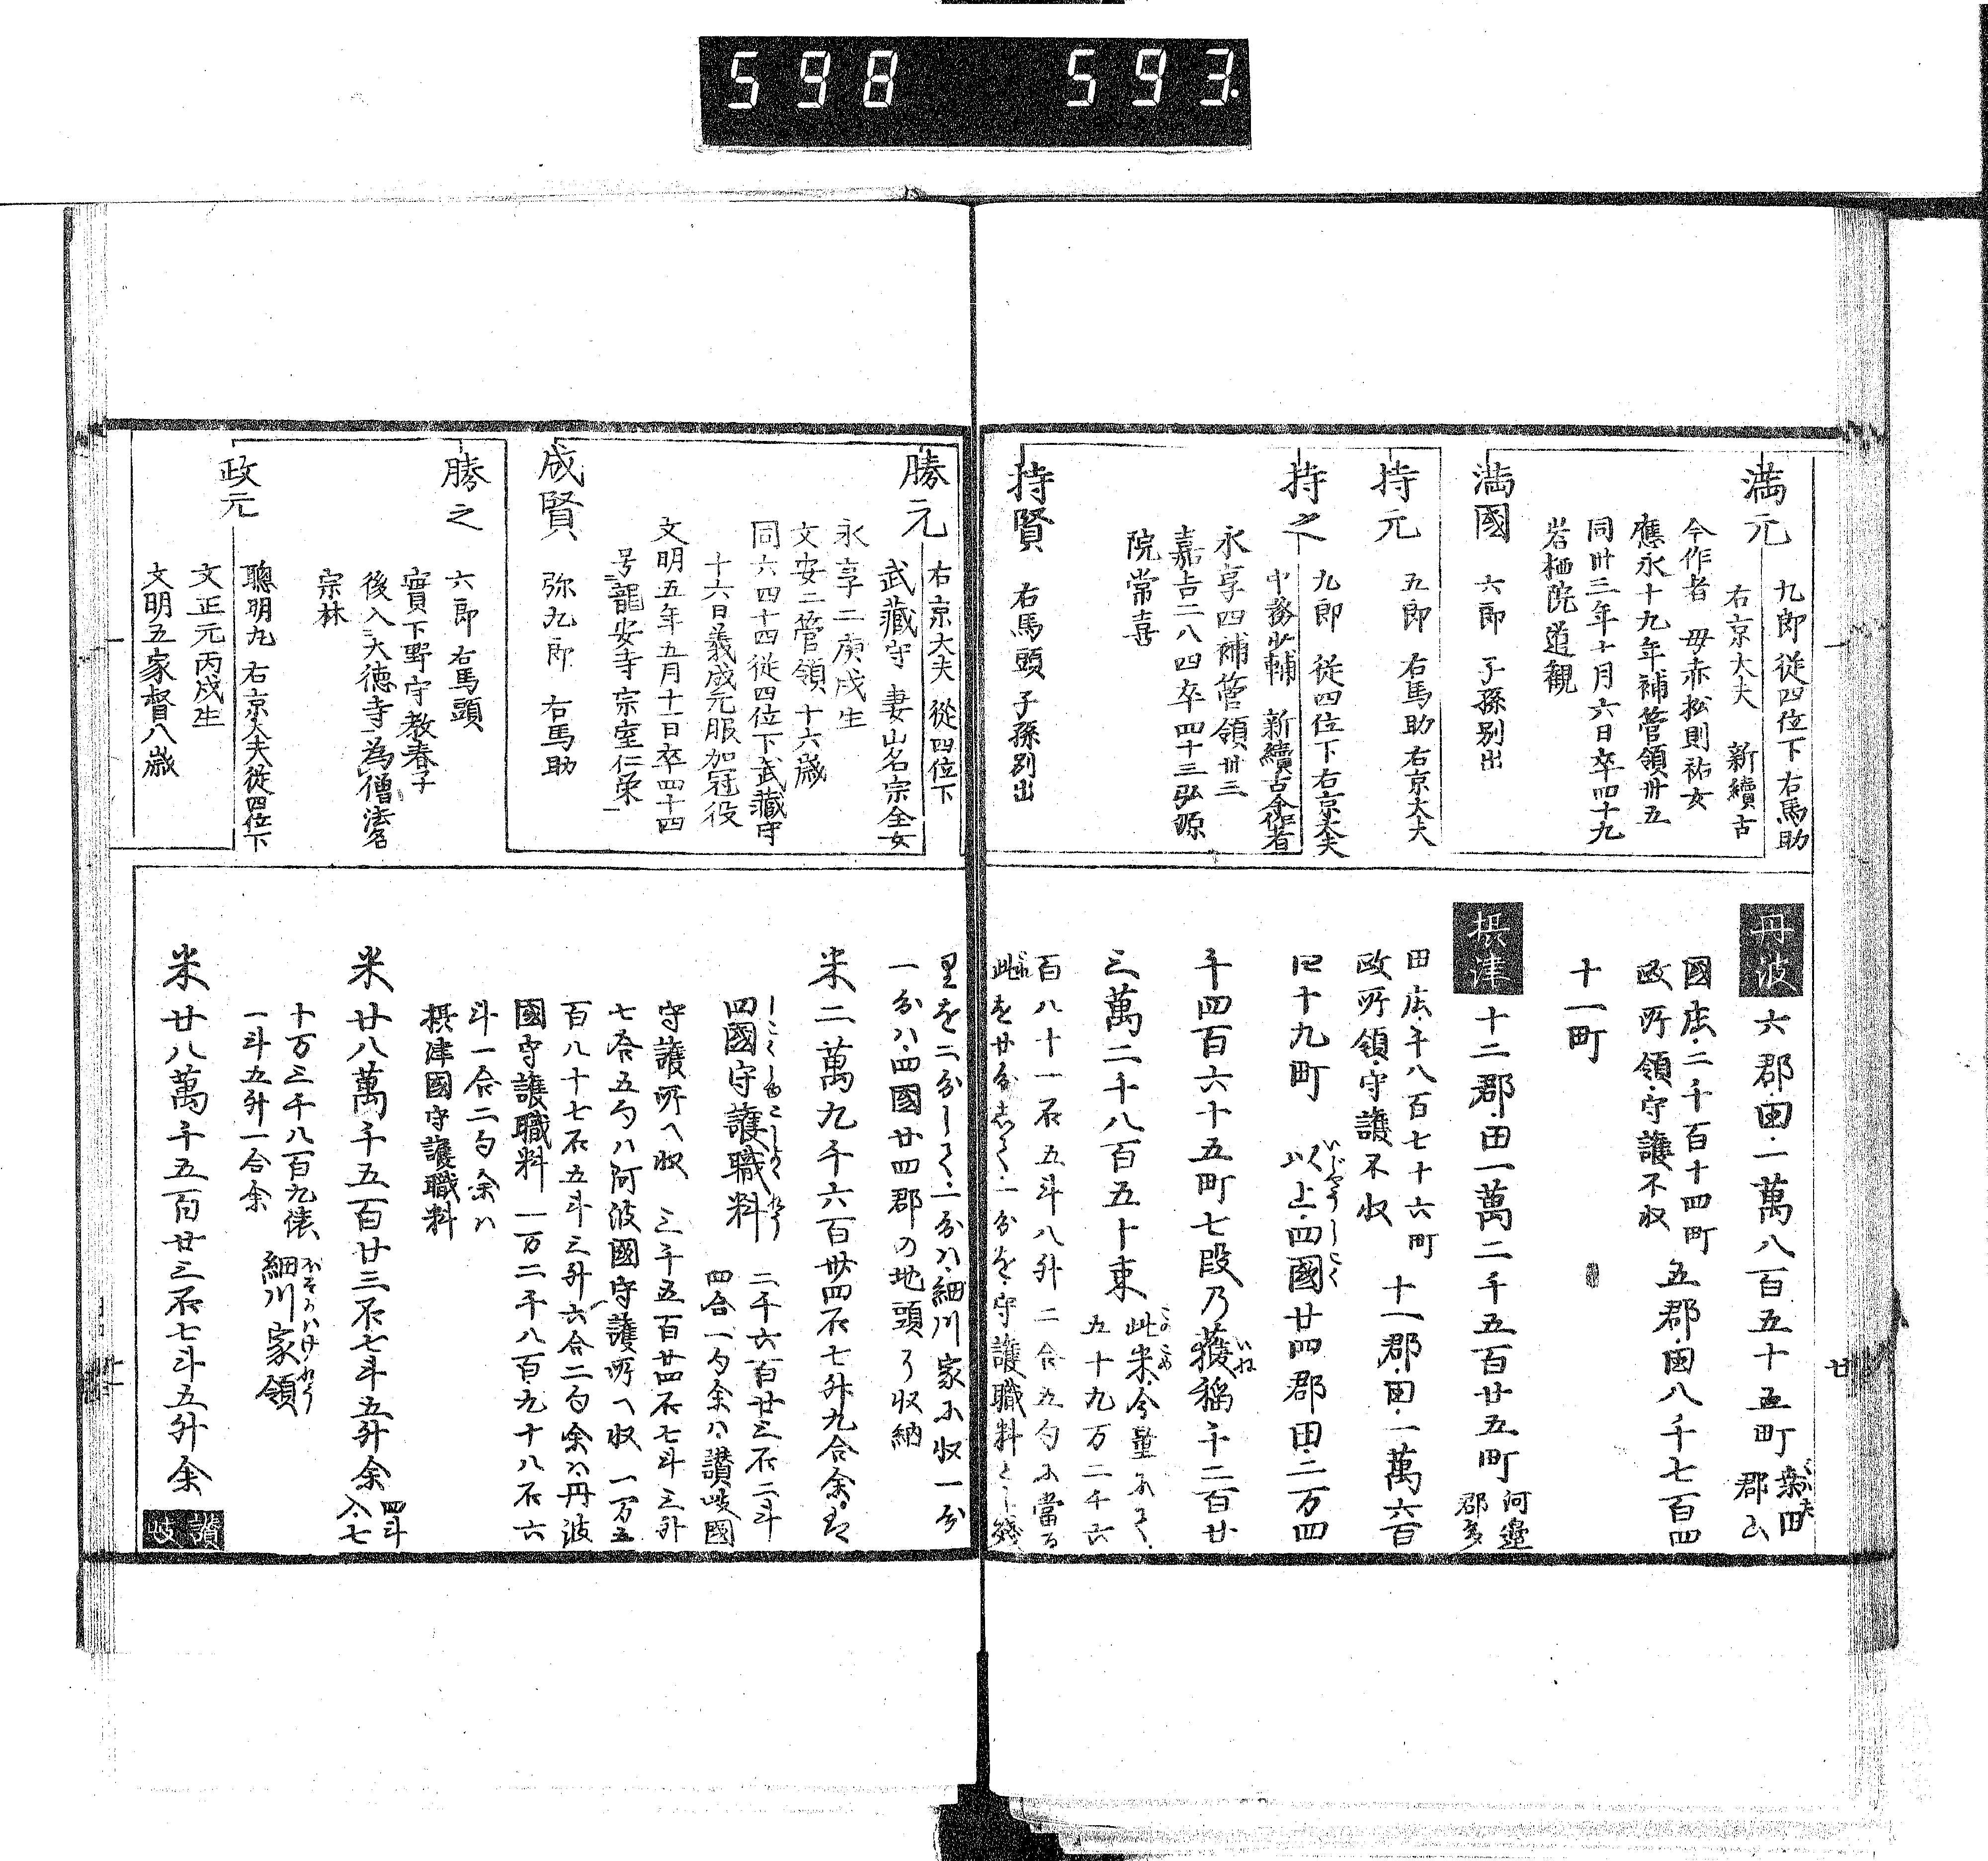 598 593
満元
九郎 従四位下右馬助
右京大夫 新續古
今作者 母赤松則祐女
應永十九年補管領卅五
同卅三年十月六日卒四十九
岩栖院道観
満國 六郎 子孫別出
持元 五郎 右馬助右京大夫
持之
九郎 従四位下右京大夫
中務少輔 新續古今作者
永享四補管領卅三
嘉吉二八四卒四十三弘源
院常喜
持賢 右馬頭 子孫別出
丹波 六郡田二萬八百五十五町 桑田
郡ム
國庄二千百十四町
政所領守護不収
五郡田八千七百四
十一町
摂津 十二郡田一萬二千五百廿五町 河邉
郡多
田庄千八百七十六町
政所領守護不収
十一郡田一萬六百
四十九町 以上四國廿四郡田二万四
千四百六十五町七段乃獲稲千二百廿
三萬二千八百五十束 此米今量にて
五十九万二千六
百八十一石五斗八升二合五勺に當る
此を廿分して一分を守護職料とし残
廿
勝元
右京大夫 従四位下
武藏守 妻山名宗全女
永享二庚戌生
文安二管領十六歳
同六四十四従四位下武藏守
十六日義成元服加冠役
文明五年五月十一日卒四十四
号龍安寺宗室仁栄
成賢 弥九郎 右馬助
勝之
六郎右馬頭
實下野守教春子
後入大徳寺為僧法名
宗林
政元
聰明九 右京大夫従四位下
文正元丙戌生
文明五家督八歳
里を二分して二分ハ細川家に収一分
一分ハ四國廿四郡の地頭に収納
米二萬九千六百卅四石七升九合余を
四國守護職料 二千六百廿三石二斗
四合一勺余ハ讃岐國
守護所へ収 三千五百廿四石七斗三升
七合五勺ハ阿波國守護所へ収 一万五
百八十七石五斗三升六合二勺余ハ丹波
國守護職料 一万二千八百九十八石六
斗一合二勺余ハ
摂津國守護職料
米廿八萬千五百廿三石七斗五升余 四斗
入七
十万三千八百九俵
一斗五升一合余 細川家領
米廿八萬千五百廿三石七斗五升余 讃
岐